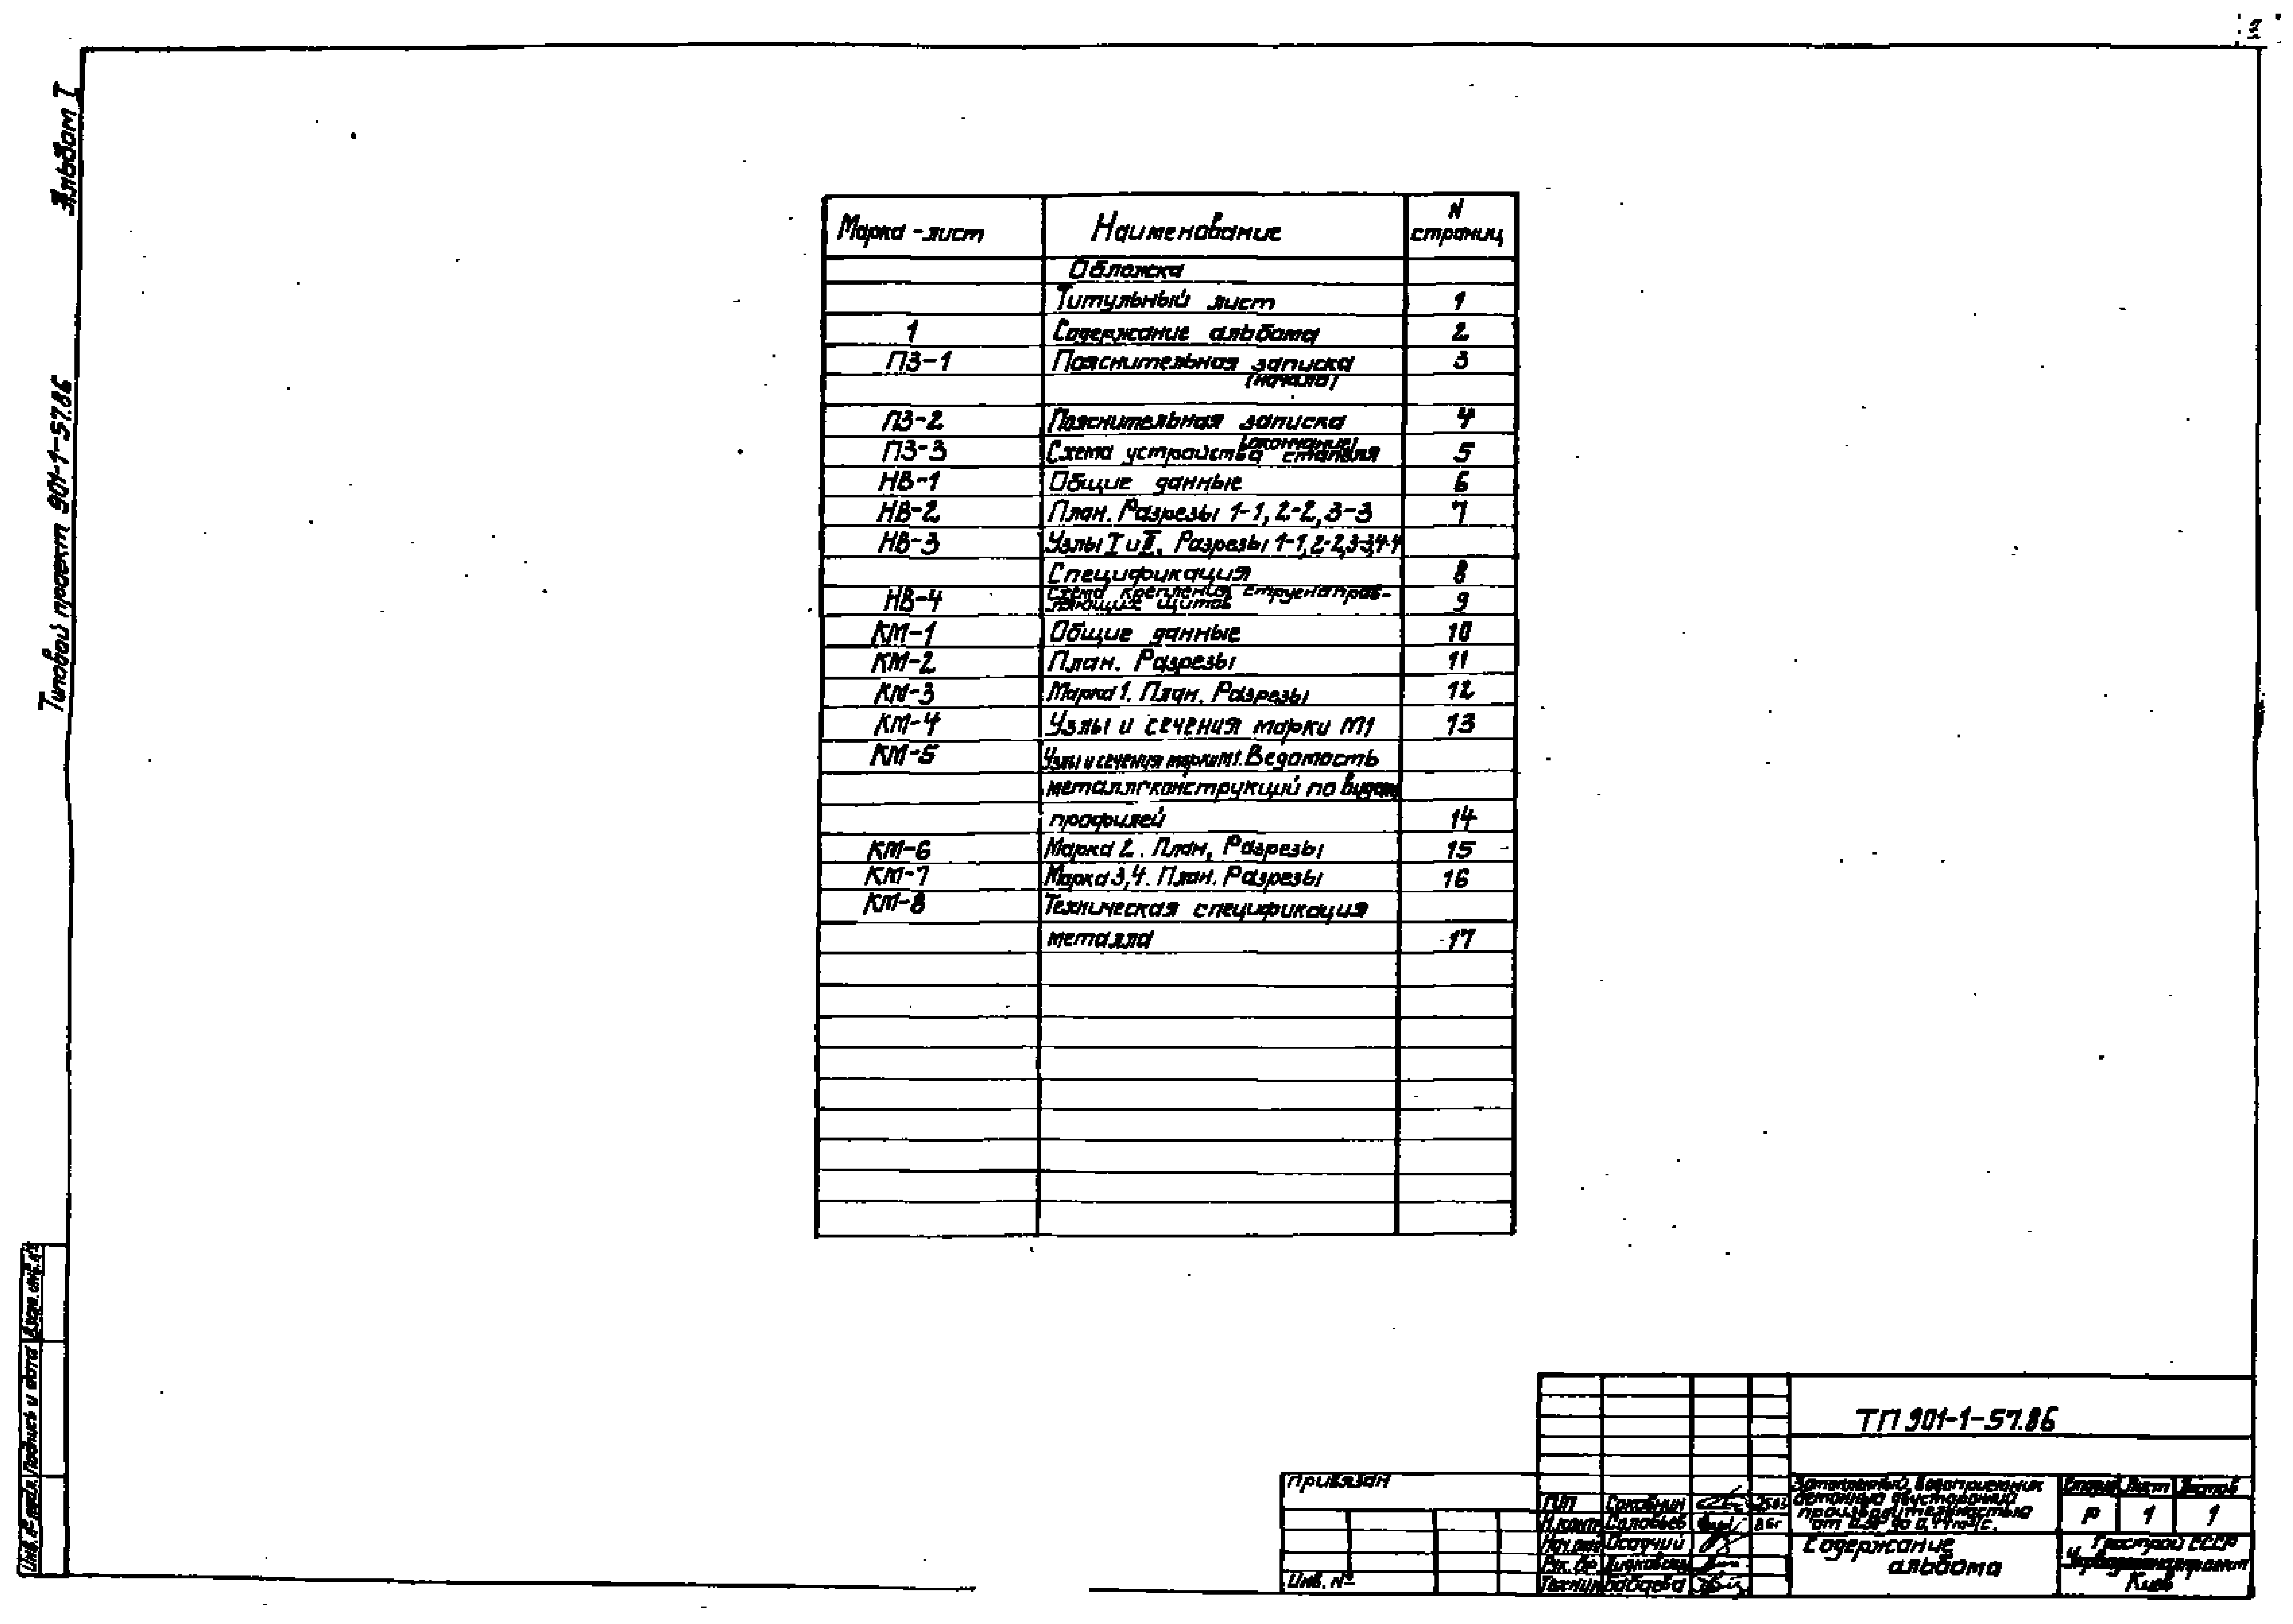 2
Альбом I
Типовой проект 901-1-57.86
Марка-лист Наименование N страниц
Обложка
Титульный лист 1
1 Содержание альбома 2
ПЗ-1 Пояснительная записка 3
(начало)
ПЗ-2 Пояснительная записка 4
(окончание)
ПЗ-3 Схема устройства стапеля 5
НВ-1 Общие данные 6
НВ-2 План. Разрезы 1-1, 2-2, 3-3 7
НВ-3 Узлы I и II. Разрезы 1-1, 2-2, 3-3, 4-4
Спецификация 8
НВ-4 Схема крепления струенаправ-
ляющих щитов 9
КМ-1 Общие данные 10
КМ-2 План. Разрезы 11
КМ-3 Марка 1. План. Разрезы 12
КМ-4 Узлы и сечения марки М1 13
КМ-5 Узлы и сечения марки М1. Ведомость
металлоконструкций по видам
профилей 14
КМ-6 Марка 2. План, Разрезы 15
КМ-7 Марка 3,4. План. Разрезы 16
КМ-8 Техническая спецификация
металла 17
Взам. инв. №
Подпись и дата
Инв. № подл.
ТП 901-1-57.86
Привязан
Инв. №
ГИП
Н.контр. Соловьев 86г
Нач.отд. Осадчий
Рук. бр.
Техник Бабаева
Затопленный водоприемник
бетонный двусторонний
производительностью
Стадия Лист Листов
Р 1 1
Содержание
альбома
Госстрой СССР
Укрводоканалпроект
Киев